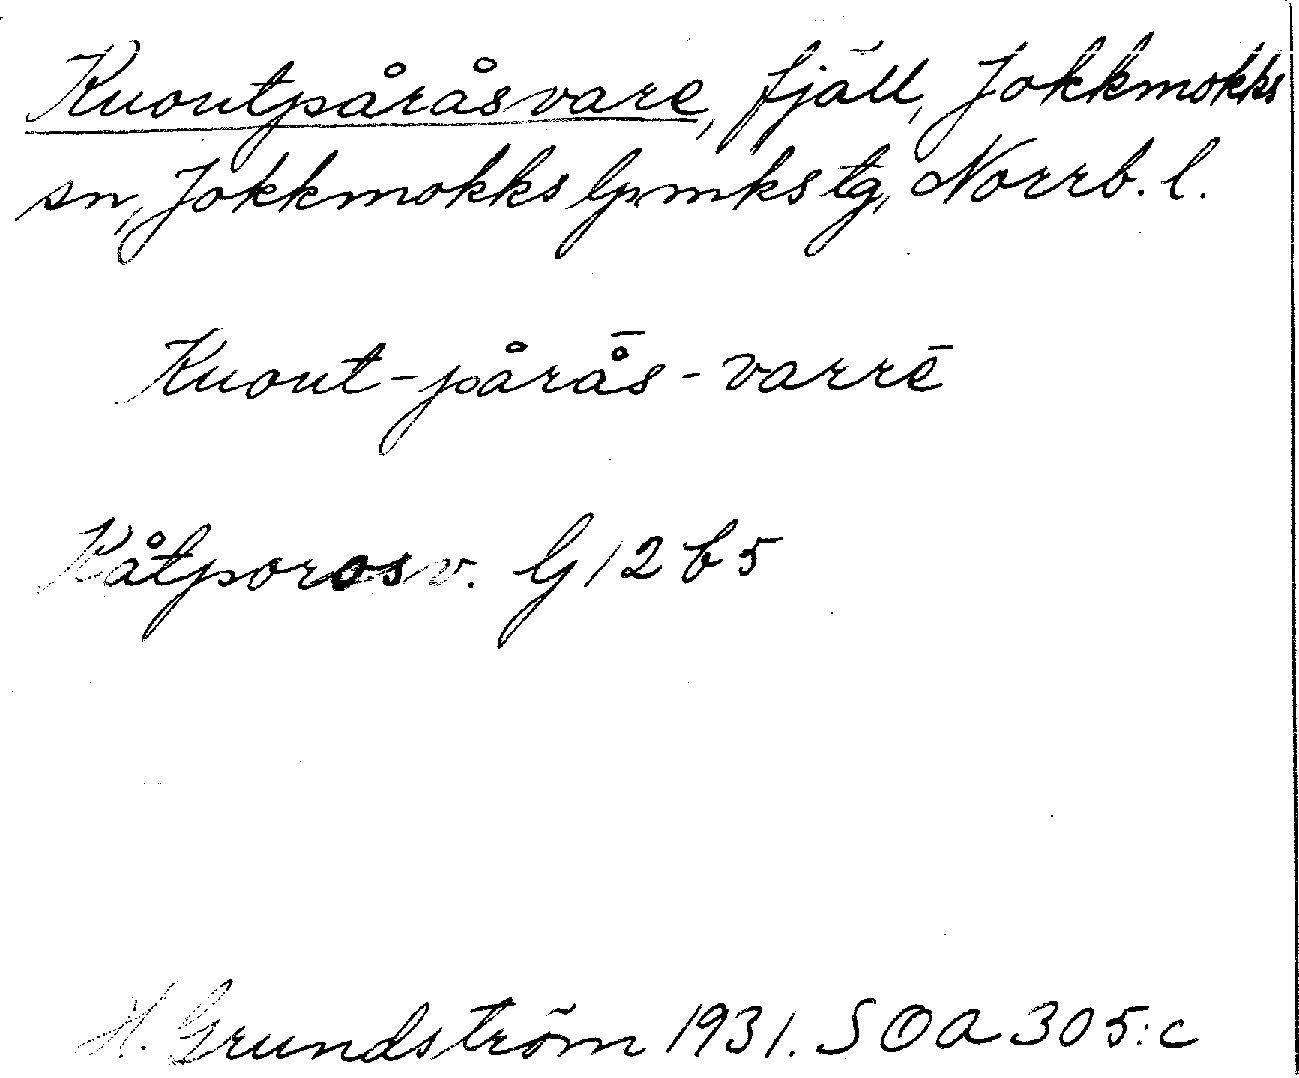 Kuoutpåråsvare, fjäll, Jokkmokks
sn, Jokkmokks lpmks tg, Norrb. l.
Kuout-pårå̄s-varrē
Kåtporosv. G12b5
H. Grundström 1931. SOA 305:c